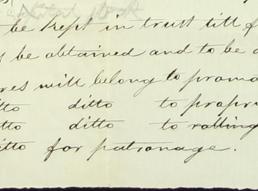 be kept in trust till f
be obtained and to be a
res will belong to promo
tto ditto to propri
tto ditto to rolling
itto for patronage.